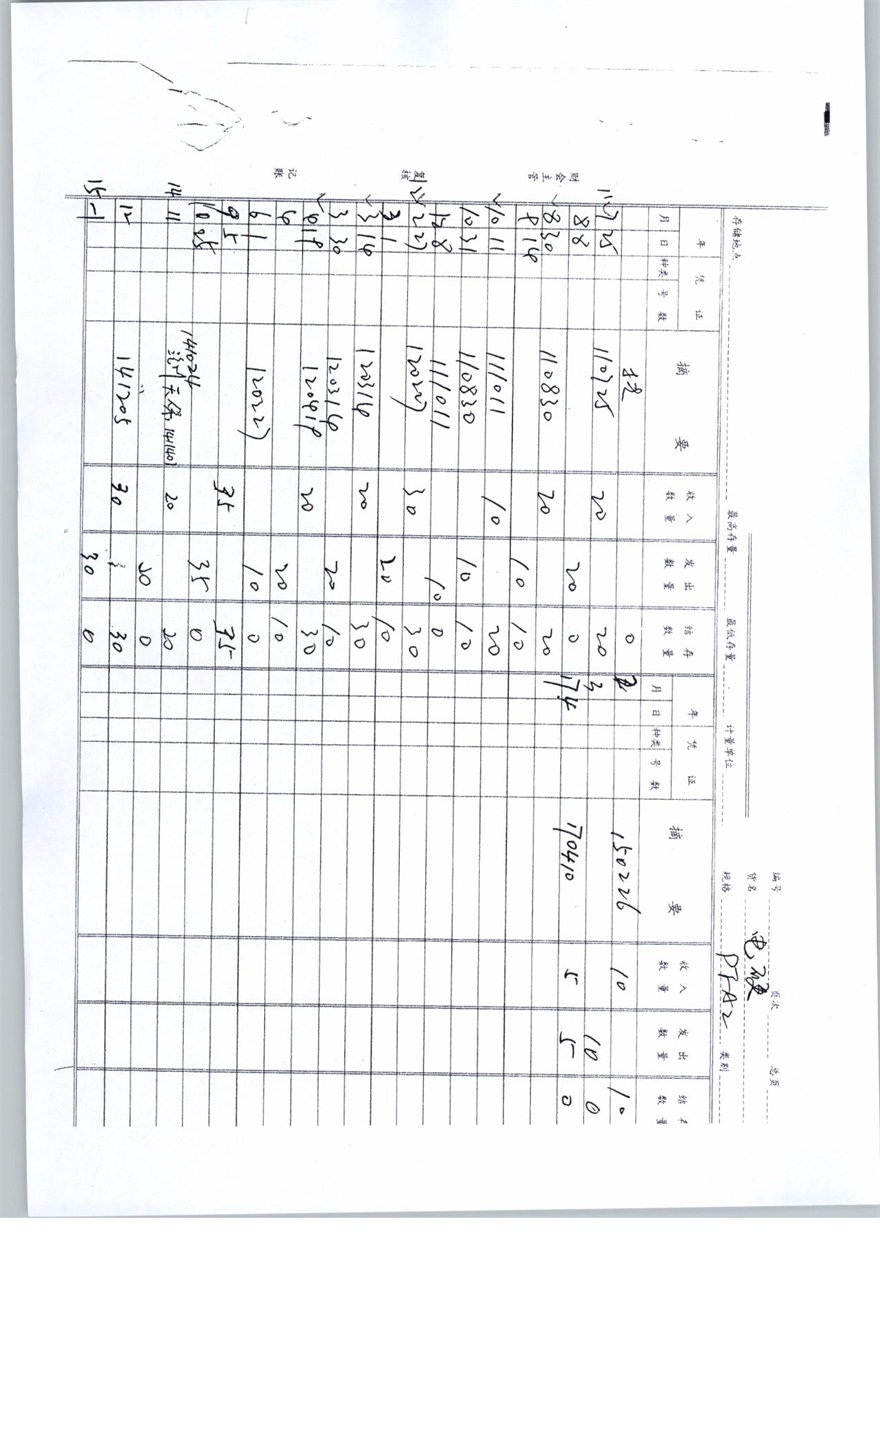 编号 页次 总页
货名 电
规格 PFA2 类别
存储地点 最高存量 最低存量 计量单位
年 凭证 摘要 收入 发出 结存 年 凭证 摘要 收入 发出 结存
月 日 种类 号数 数量 数量 数量 月 日 种类 号数 数量 数量 数量
0 2 150226 10 10
11 7 25 110725 20 20 3 10 0
8 8 20 0 17 4 170410 5 5 0
8 30 110830 20 20
9 14 10 10
10 11 111011 10 20
10 31 110830 10 10
12 8 111011 10 0
12 2 27 120227 30 30
3 1 20 10
3 14 120314 20 30
3 30 120314 20 10
4 19 120419 20 30
6 20 10
6 1 120227 10 0
9 5 35 35
10 25 35 0
14 11 141024 20 20
20 0
12 141205 30 30
15 1 30 0
财会主管 复核 记账